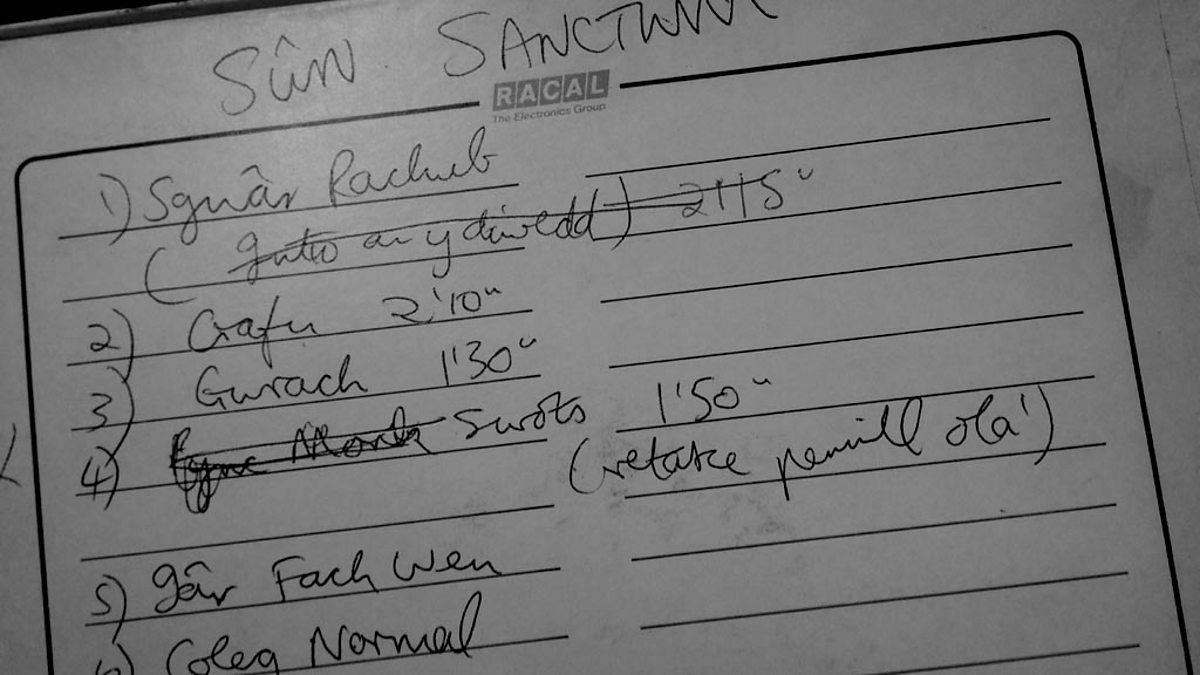 SŴN SANCTUM
RACAL
The Electronics Group
1) Sgwâr Rachub
( gutto ar y diwedd ) 2'15"
2) Crafu 2'10"
3) Gwrach 1'30"
4) Swots 1'50"
(retake pennill ola')
5) gâr Fach Wen
6) Coleg Normal